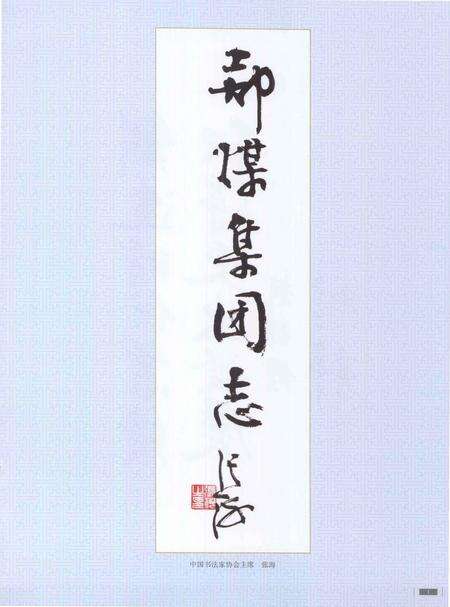 郑煤集团志
张海
中国书法家协会主席 张海